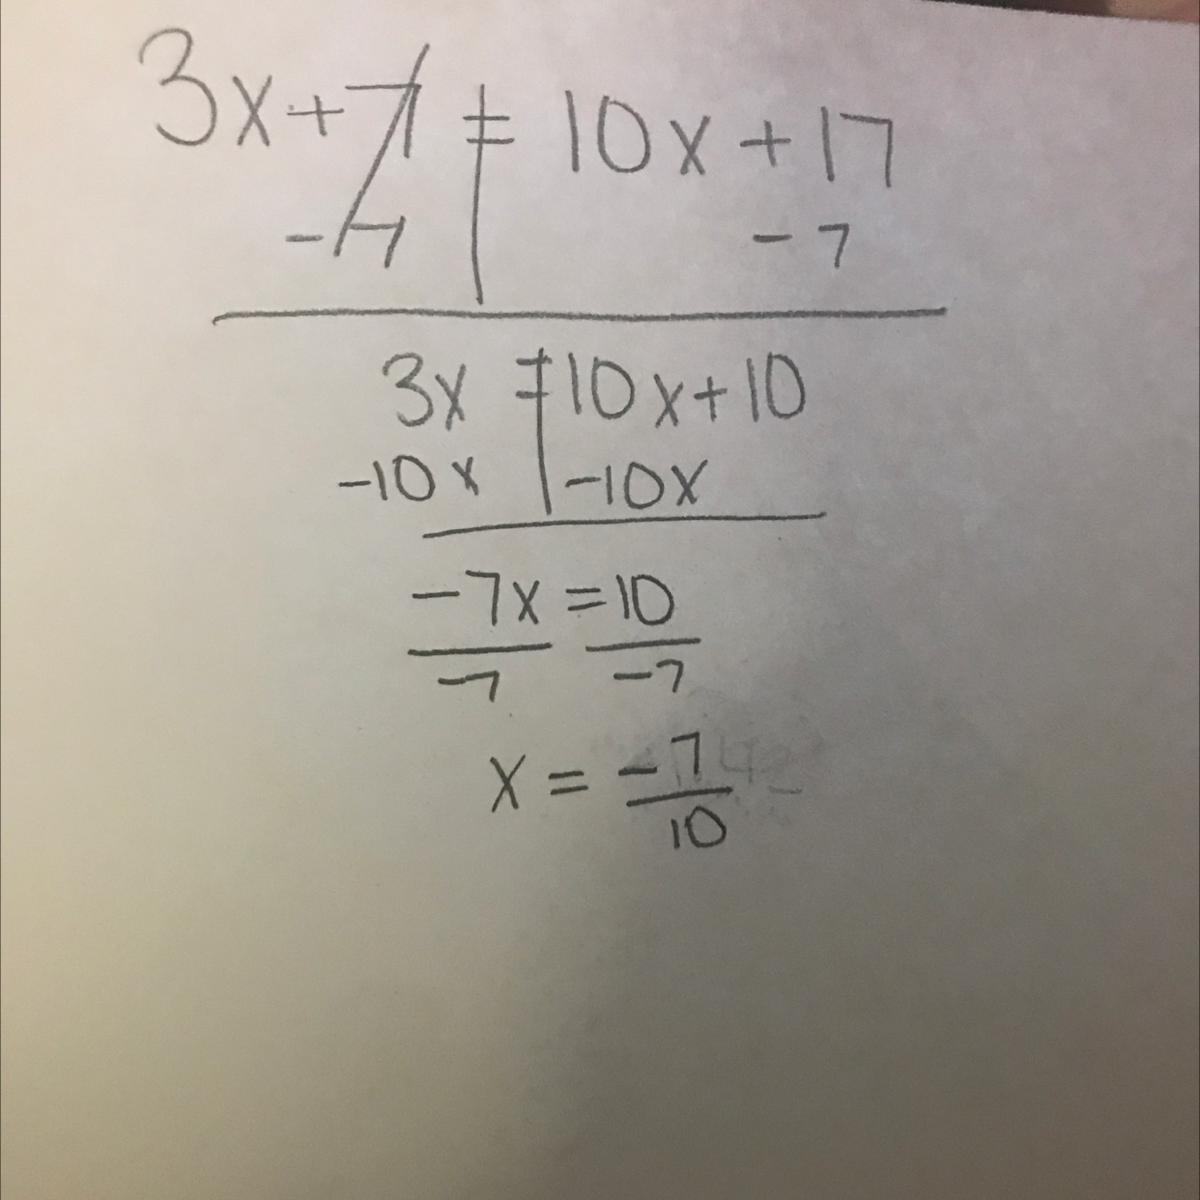 3x + 7 = 10x + 17
- 7 - 7
3x = 10x + 10
-10x -10x
-7x = 10
-7 -7
x = -7
10